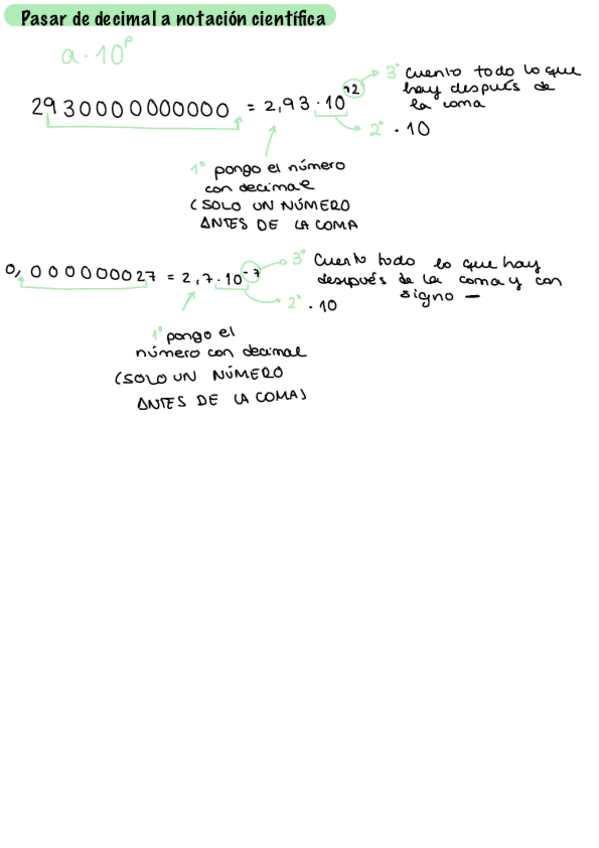 Pasar de decimal a notación científica
a · 10^p
2930000000000 = 2,93 · 10^12
3° cuento todo lo que
hay después de
la coma
2° · 10
1° pongo el número
con decimal
(SOLO UN NÚMERO
ANTES DE LA COMA
0,000000027 = 2,7 · 10^-7
3° Cuento todo lo que hay
después de la coma y con
signo —
2° · 10
1° pongo el
número con decimal
(SOLO UN NÚMERO
ANTES DE LA COMA)